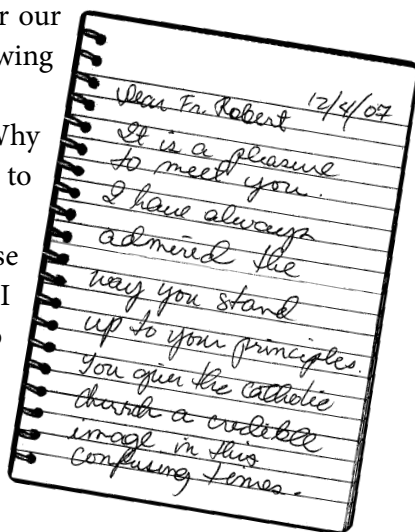 r our
wing
Why
to
se
I
Dear Fr. Robert 12/4/07
It is a pleasure
to meet you.
I have always
admired the
way you stand
up to your principles.
You give the catholic
church a credible
image in this
confusing times.